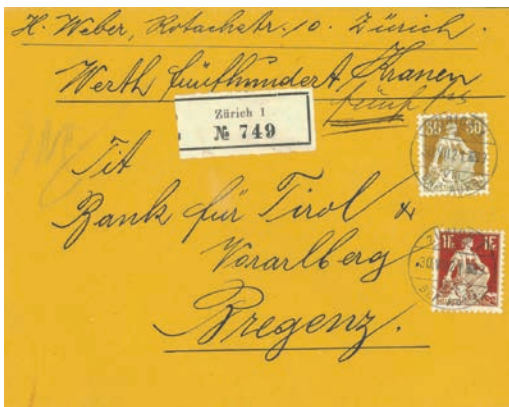 H. Weber, Rotachstr. 10. Zürich.
Werth fünfhundert Kronen
fünf frs
Zürich 1
№ 749
Tit
Bank für Tirol &
Vorarlberg
Bregenz.
30 30
1F 1F